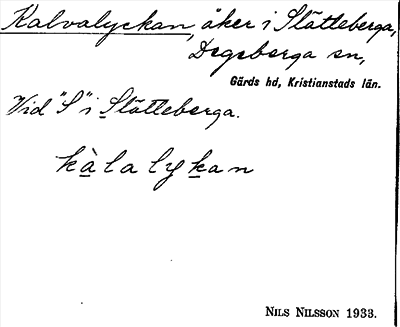 Kalvalyckan, åker i Slätteberga,
Degeberga sn,
Gärds hd, Kristianstads län.
Vid "S" i Slätteberga.
kàlalykan
NILS NILSSON 1933.